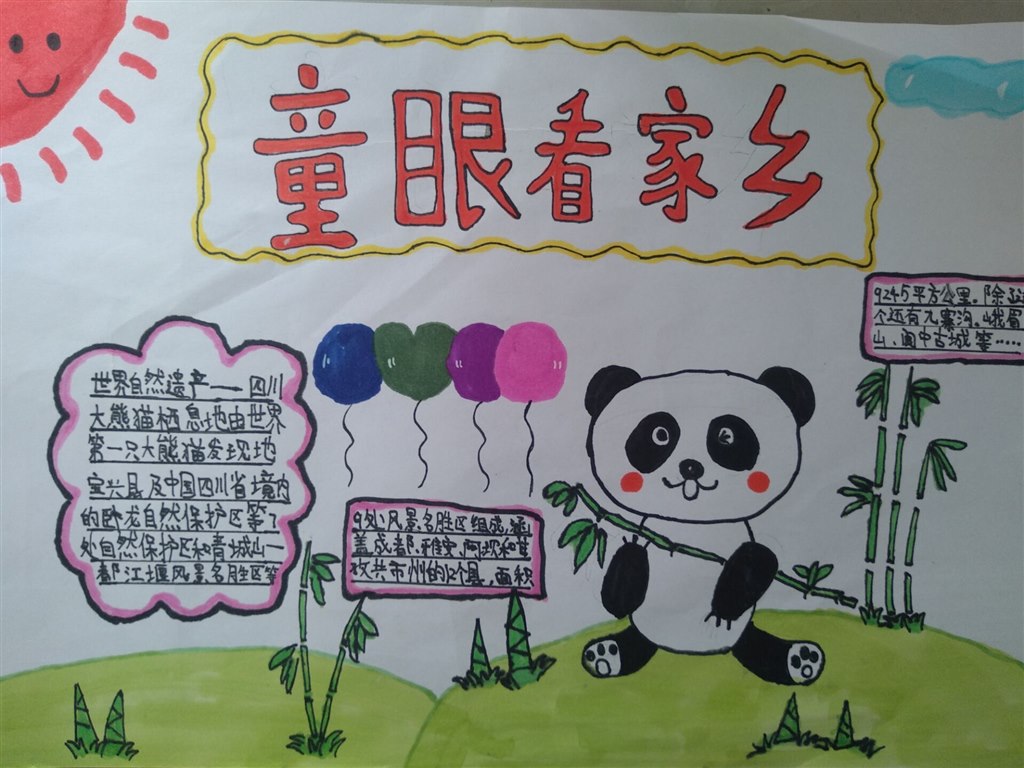 童眼看家乡
世界自然遗产——四川
大熊猫栖息地由世界
第一只大熊猫发现地
宝兴县及中国四川省境内
的卧龙自然保护区等7
处自然保护区和青城山—
都江堰风景名胜区等
9处风景名胜区组成,涵
盖成都、雅安、阿坝和甘
孜共市州的12个县,面积
9245平方公里。除
个还有九寨沟。峨眉
山、阆中古城等……